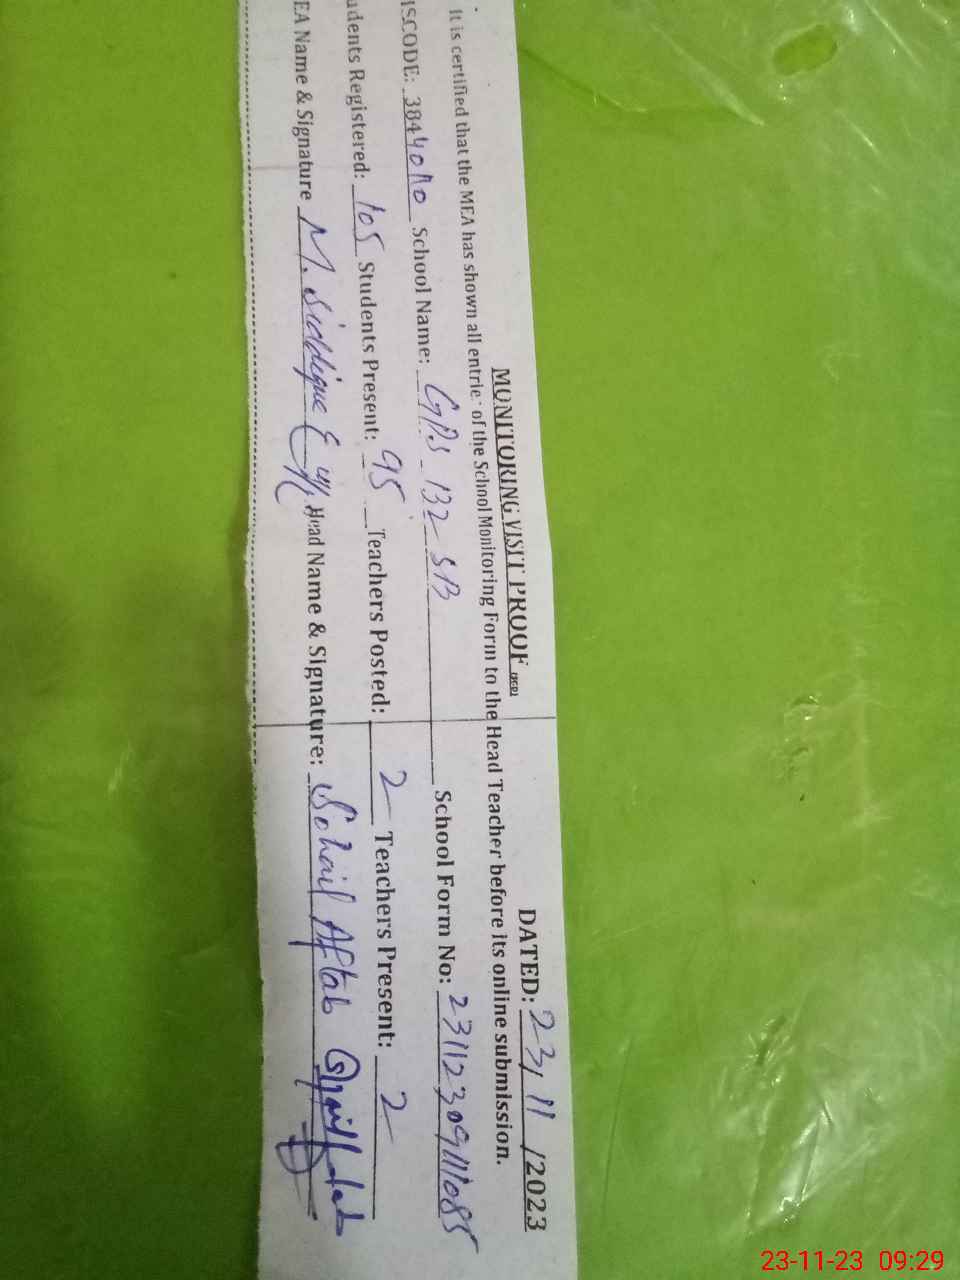 MONITORING VISIT PROOF
DATED: 23/11/2023
It is certified that the MEA has shown all entries of the School Monitoring Form to the Head Teacher before its online submission.
ISCODE: School Name: GPS 132 SB School Form No: 231123091111085
udents Registered: 105 Students Present: 95 Teachers Posted: 2 Teachers Present: 2
EA Name & Signature M. Siddique Head Name & Signature: Sohail Aftab
23-11-23 09:29